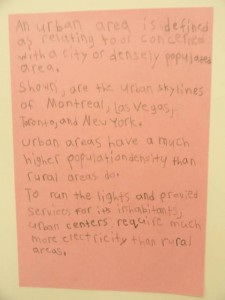 An urban area is defined
as relating to or concerned
with a city or densely populated
area.
Shown, are the urban skylines
of Montreal, Las Vegas,
Toronto, and New York.
Urban areas have a much
higher population density than
rural areas do.
To run the lights and provied
services for its inhabitants,
urban centers require much
more electricity than rural
areas.